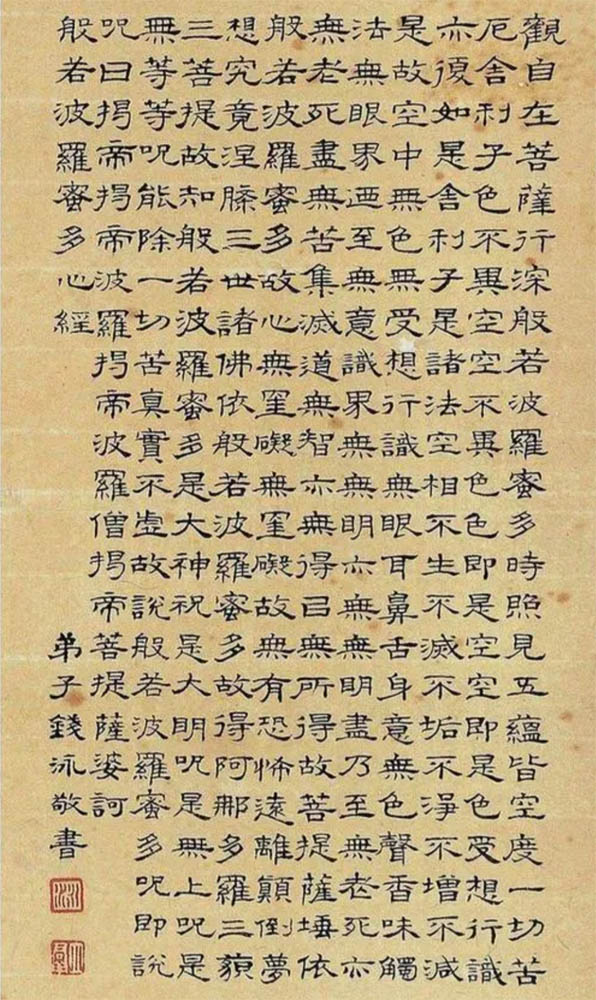 觀自在菩薩行深般若波羅蜜多時照見五蘊皆空度一切苦
厄舍利子色不異空空不異色色即是空空即是色受想行識
亦復如是舍利子是諸法空相不生不滅不垢不淨不增不減
是故空中無色無受想行識無眼耳鼻舌身意無色聲香味觸
法無眼界迺至無意識界無無明亦無無明盡乃至無老死亦
無老死盡無苦集滅道無智亦無得已無所得故菩提薩埵依
般若波羅蜜多故心無罣礙無罣礙故無有恐怖遠離顛倒夢
想究竟涅槃三世諸佛依般若波羅蜜多故得阿那多羅三藐
三菩提故知般若波羅蜜多是大神祝是大明咒是無上咒是
無等等呪能除一切苦真實不虛故說般若波羅蜜多呪即說
咒曰揭帝揭帝波羅揭帝波羅僧揭帝菩提薩婆訶
般若波羅蜜多心經
弟子錢泳敬書